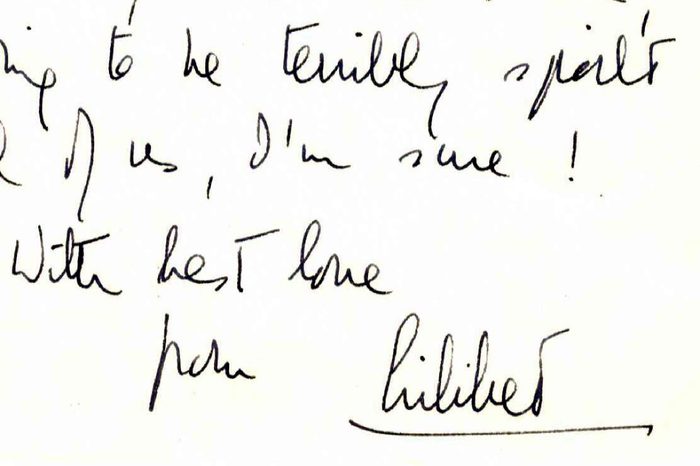 ing to be terribly spoilt
of us, I'm sure!
With best love
from Lilibet